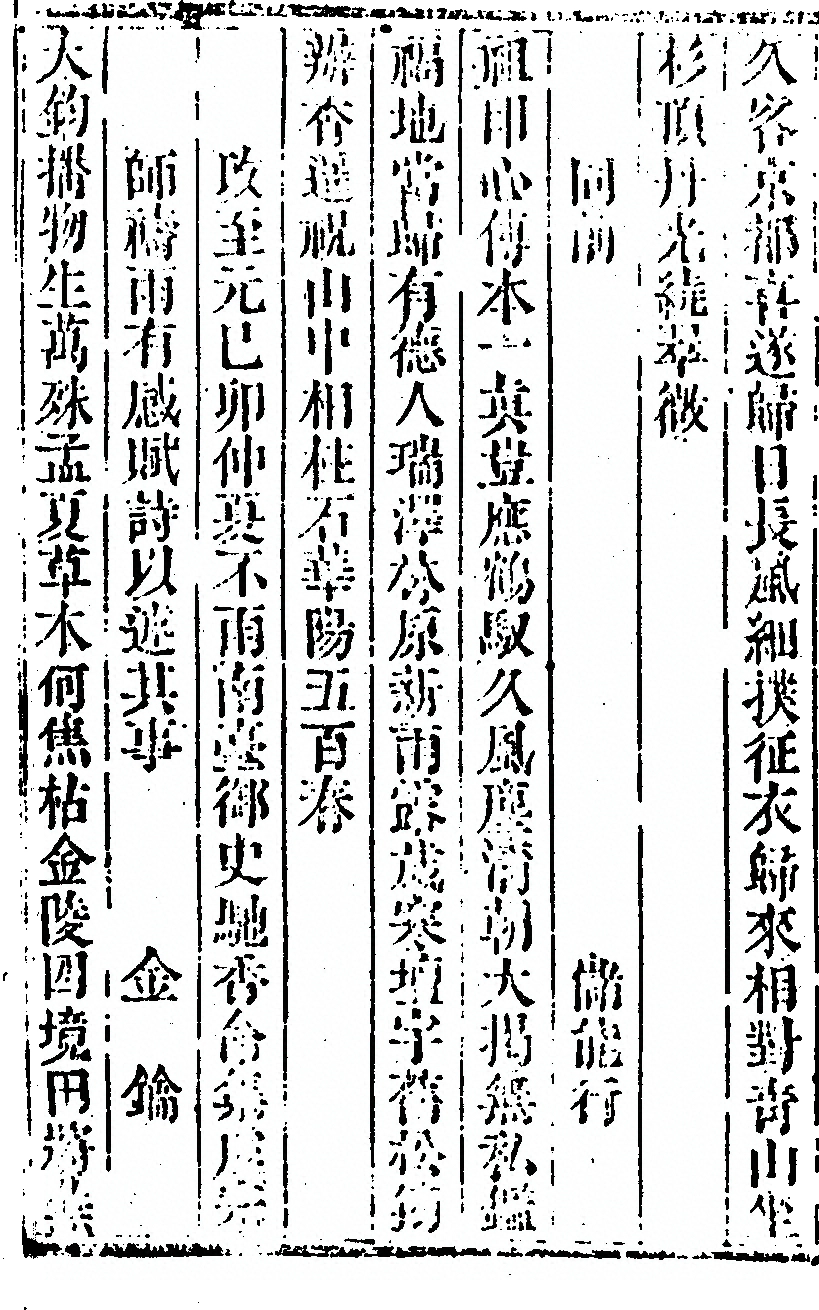 久客京都喜遂歸日長風細撲征衣歸來相對青山坐
杉頂丹光繞翠微
同前　儲能行
祖印心傳本一真豈應鶴馭久風塵清朝大揭無私鑑
福地當歸有德人瑞澤分原新雨露歲寒壇宇舊松筠
瓣香遥祝山中相柱石華陽五百春
至元己卯仲夏不雨南臺御史馳香命
師禱雨有感賦詩以述其事　金鑰
大鈞播物生萬殊孟夏草木何焦枯金陵四境田疇